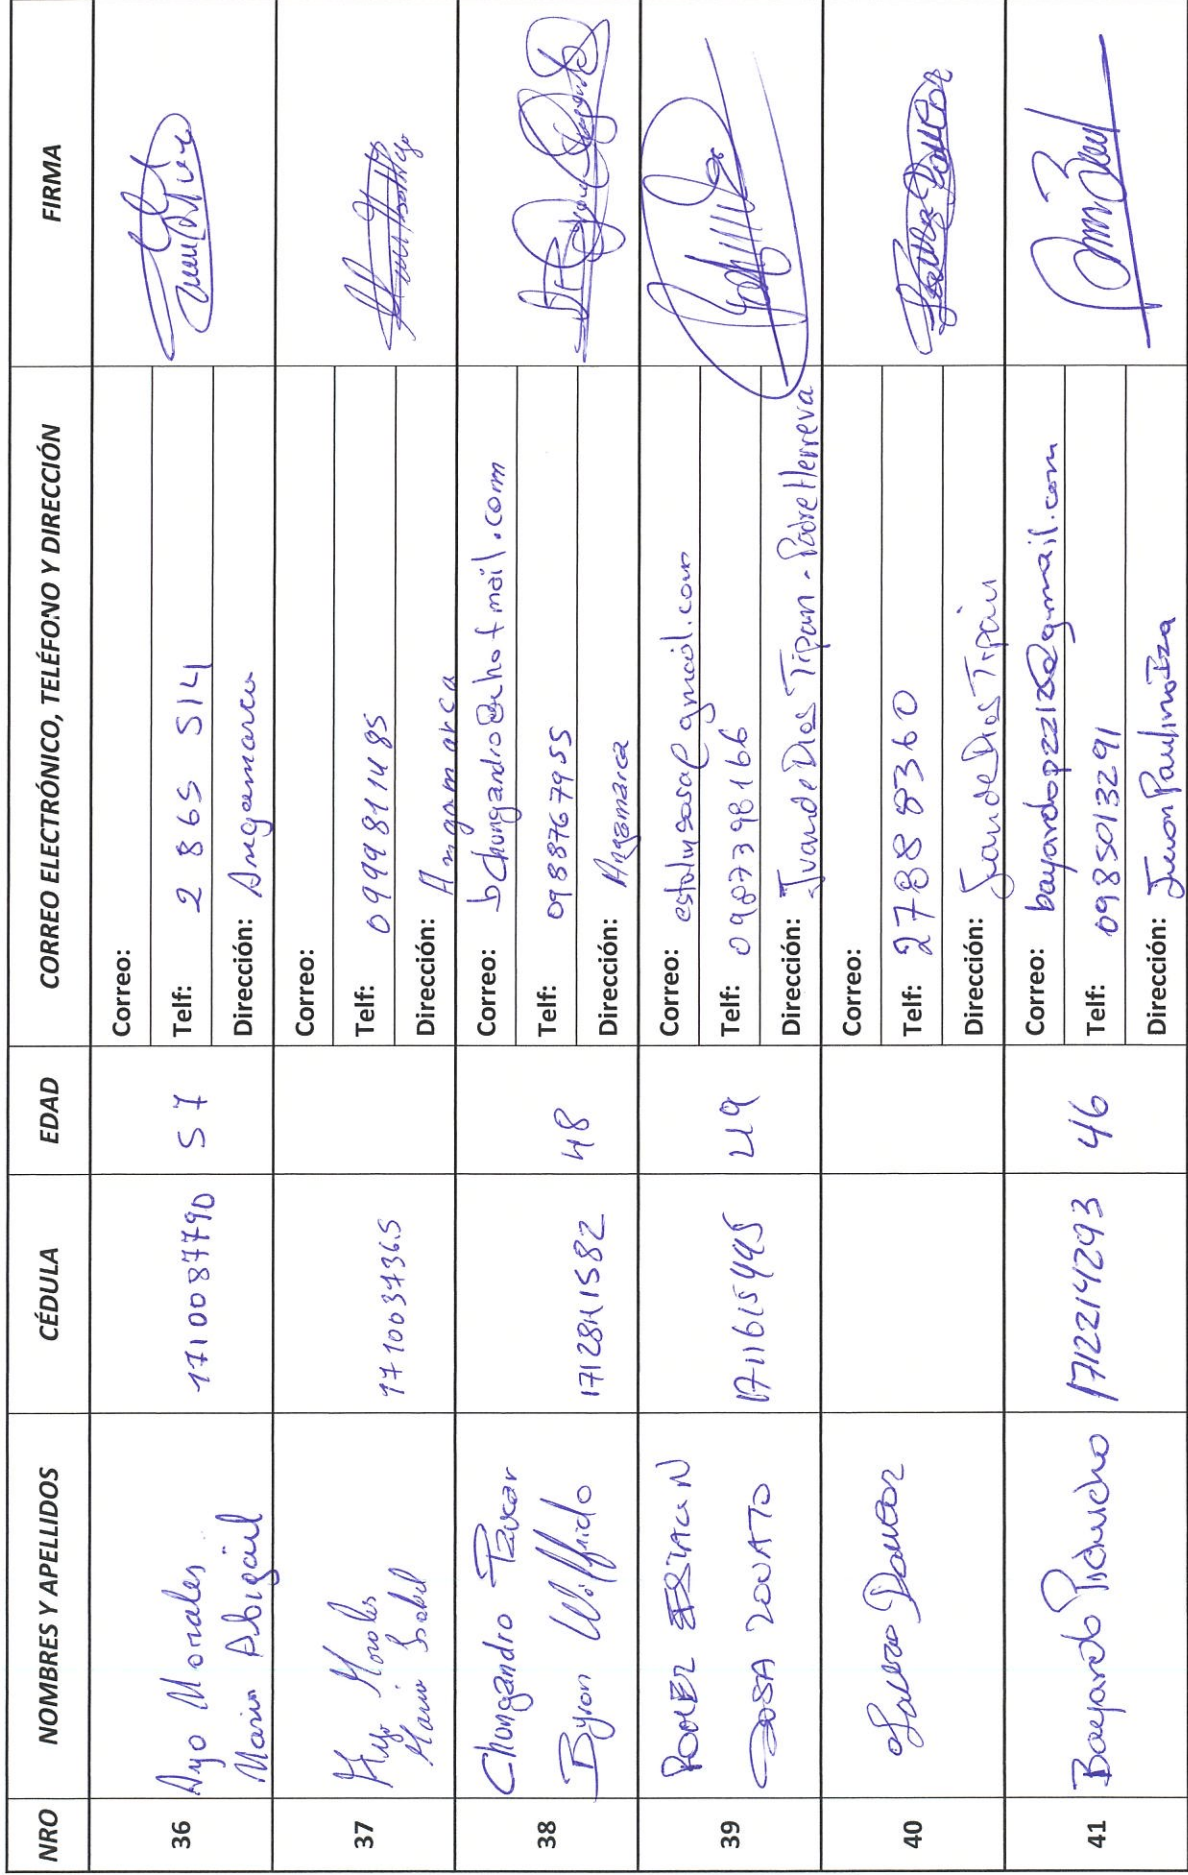 NRO NOMBRES Y APELLIDOS CÉDULA EDAD CORREO ELECTRÓNICO, TELÉFONO Y DIRECCIÓN FIRMA
36
Ayo Morales
Maria Abigail
1710087790
57
Correo:
Telf: 2 865 514
Dirección: Angamarca
37
Ayo Morales
Maria Isabel
1710037365
Correo:
Telf: 0999811485
Dirección: Angamarca
38
Chungandro Paucar
Byron Wilfrido
1712841582
48
Correo: bchungandro@hotmail.com
Telf: 0988767955
Dirección: Angamarca
39
ESTALIN
SOSA LOVATO
1711615445
49
Correo:
Telf: 0987398166
Dirección: Juan de Dios Tipan - Padre Herrera
40
Correo:
Telf: 27888360
Dirección: Juan de Dios Tipán
41
Bayardo Pichucho
1712214293
46
Correo:
Telf: 0985013291
Dirección: Juan Paulino Iza